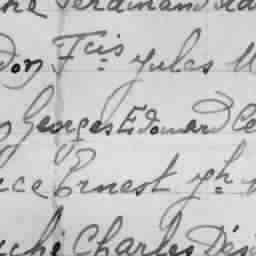 Ferdinand
don Fcis Jules
Georges Edouard Ce
ce Ernest Jh
che Charles Dés